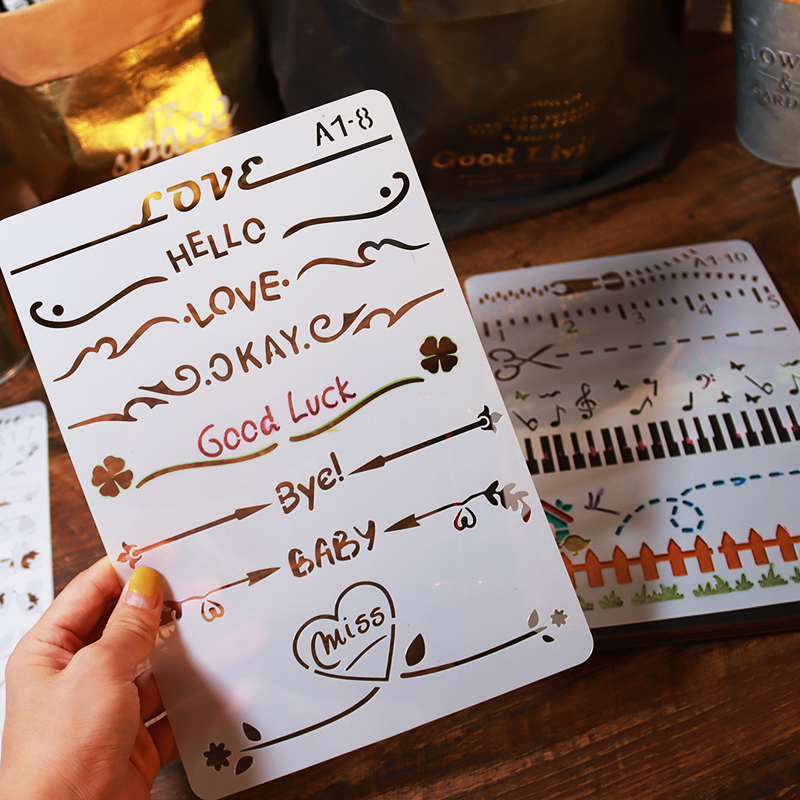 A1-8
LOVE
HELLO
·LOVE·
.OKAY.
Good Luck
Bye!
BABY
Miss
A1-10
1 2 3 4 5
space
Good Livi
&